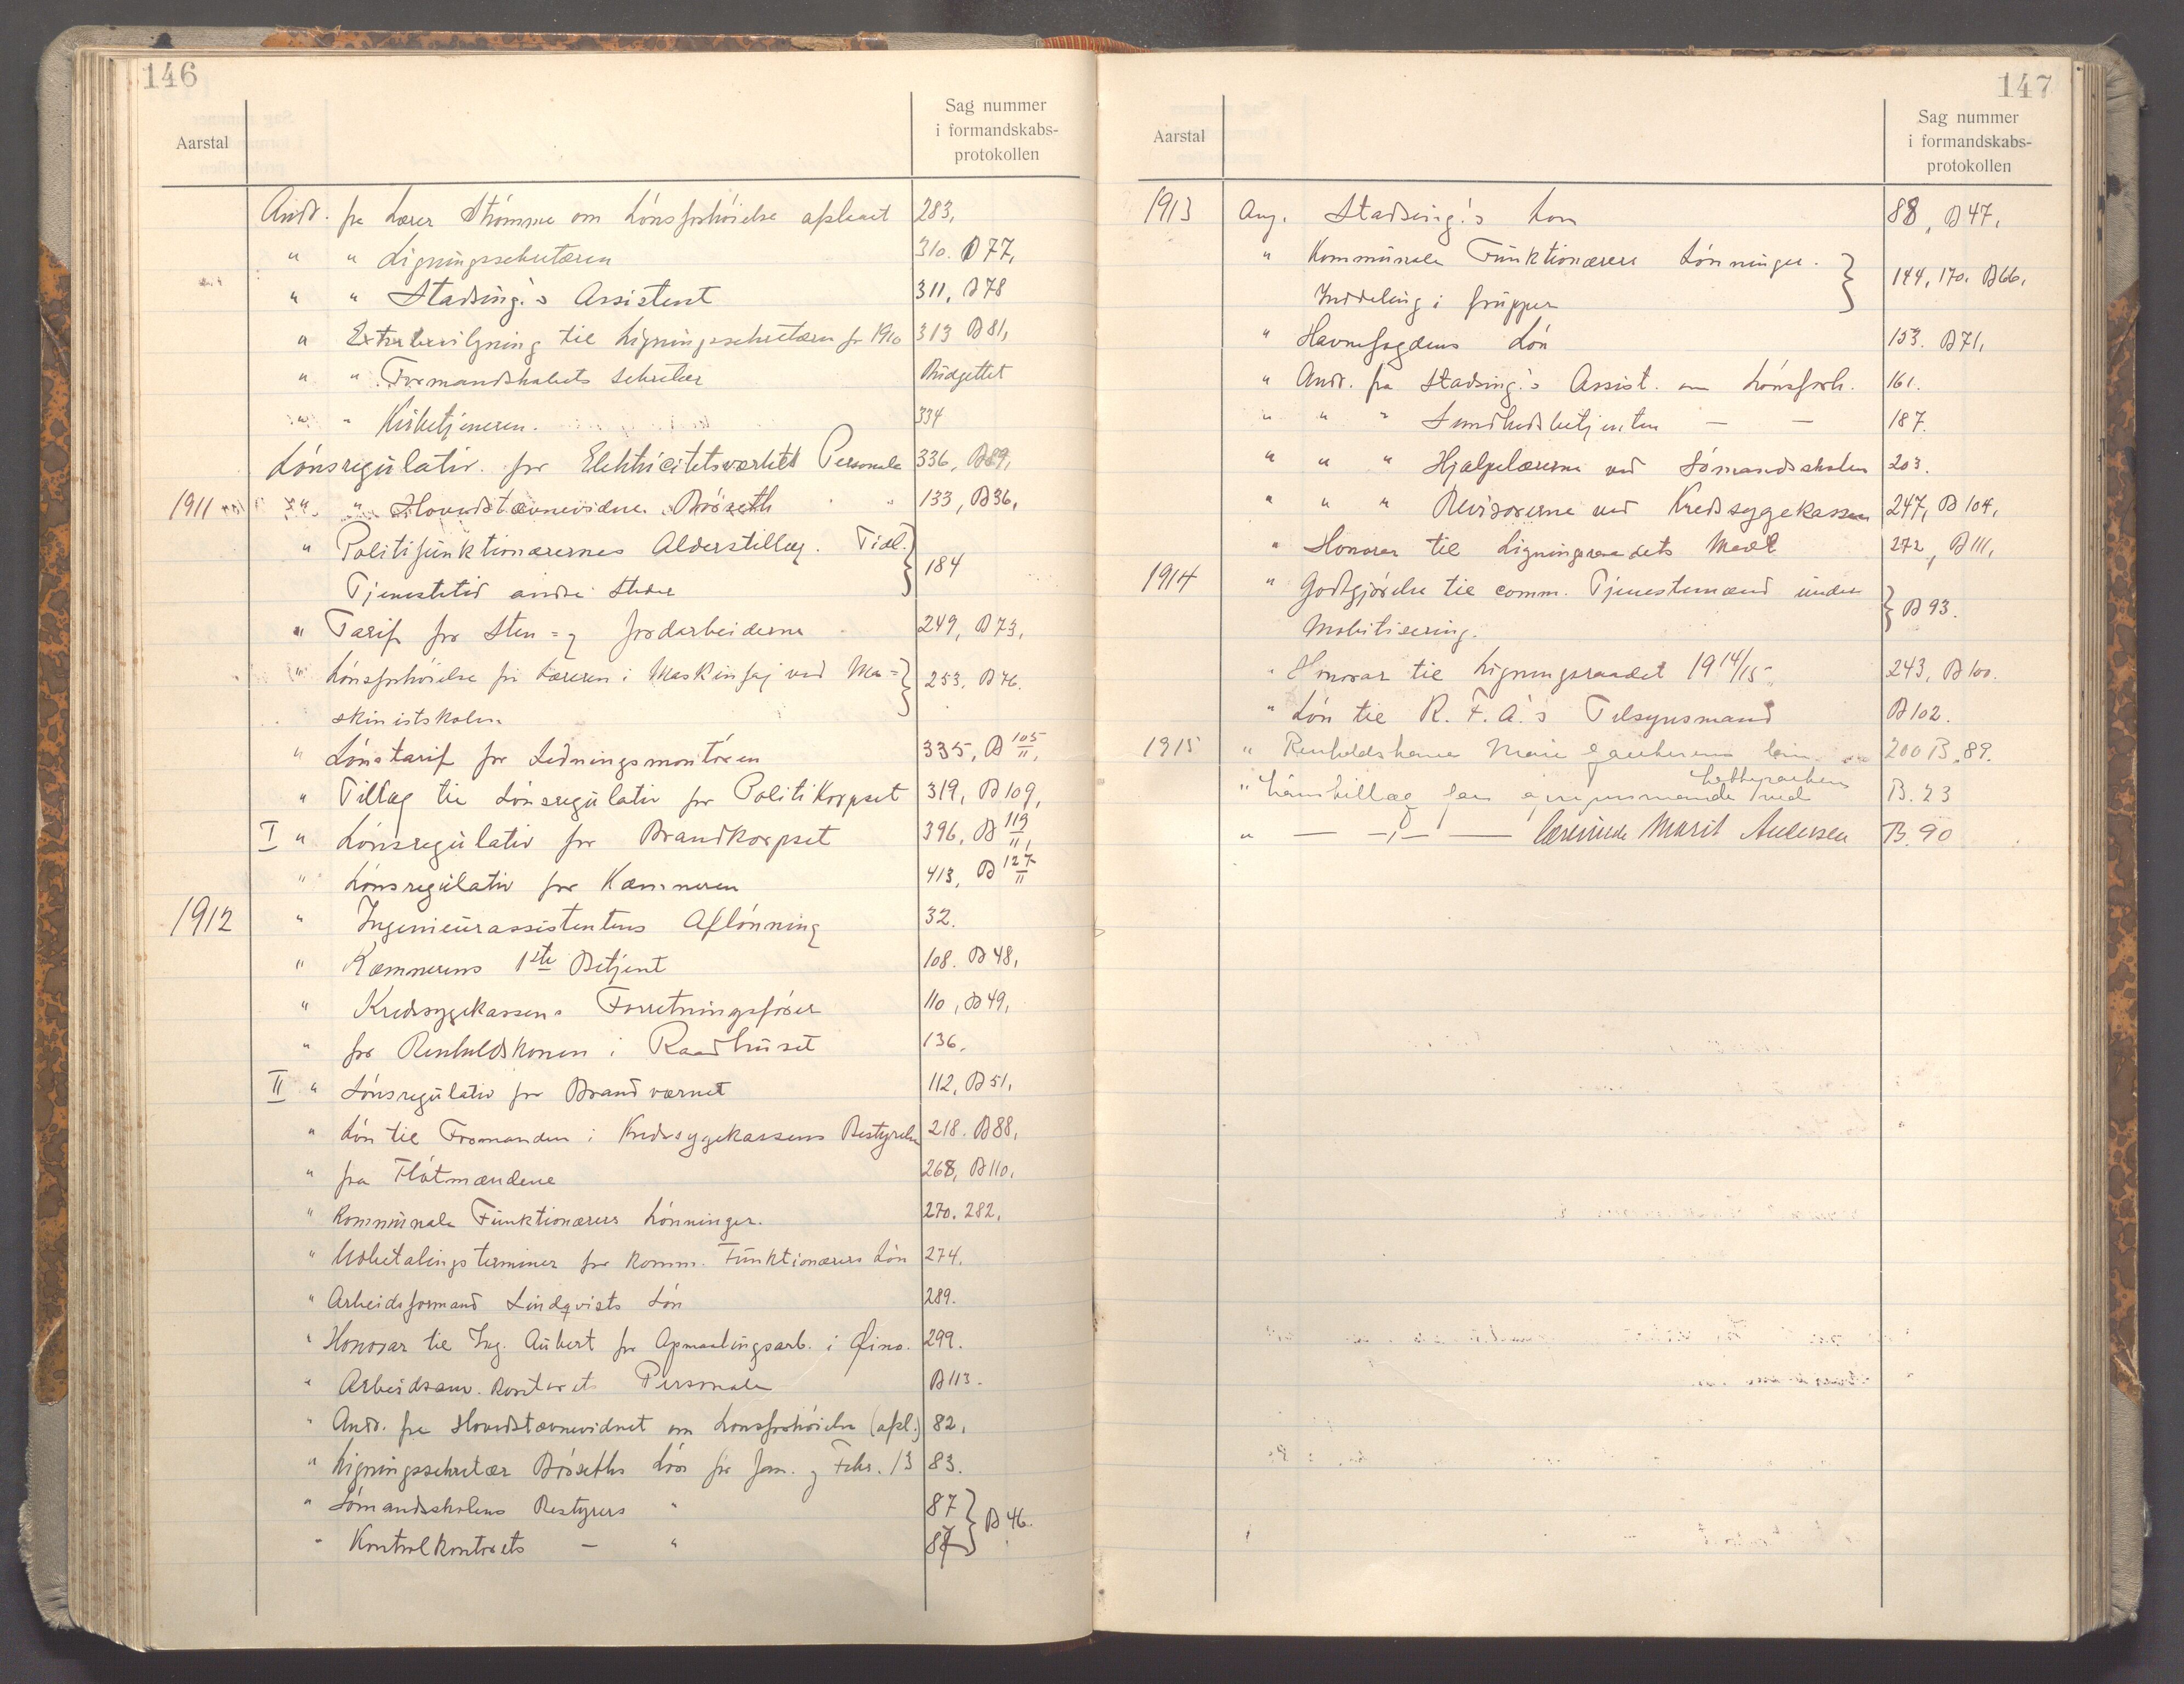 146
Aarstal
Sag nummer
i formandskabs-
protokollen
Andr. fra Lærer Strömme om Lönsforhöielse afslaaet 283,
" " Ligningssekretæren 310. B 77,
" " Stadsing.'s Assistent 311, B 78
" Extrabevilgning til Ligningssekretæren for 1910 313 B 81,
" " Formandskabets Sekretær Budgettet
" " Kirketjeneren. 334
Lönsregulativ for Elektricitetsværkets Personale 336, B 89,
1911 " " Hovedstævnevidne Bröseth " 133, B 36,
" Politifunktionærernes Alderstillæg. Tidl.
Tjenestetid andre Steder } 184
" Tarif for Sten= og Jordarbeiderne 249, B 73,
" Lönsforhöielse for Læreren i Maskinfag ved Ma=
skinistskolen } 253, B 76.
" Lönstarif for Ledningsmontören 335, B 105/II,
" Tillæg til Lönsregulativ for Politikorpset 319, B 109,
I " Lönsregulativ for Brandkorpset 396, B 119/II,
" Lönsregulativ for Kæmneren 413, B 127/II
1912 " Ingenieurassistentens Aflönning 32.
" Kæmnerens 1ste Betjent 108. B 48,
" Kredssygekassens Forretningsförer 110, B 49,
" for Renholdskonen i Raadhuset 136.
II " Lönsregulativ for Brandværnet 112, B 51,
" Lön til Formanden i Kredssygekassens Bestyrelse 218. B 88,
" fra Flötmændene 268, B 110,
" Kommunale Funktionærers Lönninger. 270. 282,
" Udbetalingsterminer for komm. Funktionærers Lön 274.
" Arbeidsformand Lindqvists Lön 289.
" Honorar til Ing. Aubert for Opmaalingsarb. i 299.
" Arbeidsanv. Kontorets Personale B 113.
" Andr. fra Hovedstævnevidnet om Lönsforhöielse (afsl.) 82,
" Ligningssekretær Bröseths Lön for Jan. og Febr. 13 83.
" Sömandsskolens Bestyrers " 87
" Kontrolkontorets — " 87 } B 46.
147
Aarstal
Sag nummer
i formandskabs-
protokollen
1913 Ang. Stadsing.'s Lön 88, B 47,
" Kommunale Funktionærers Lönninger.
Inddeling i Grupper } 144, 170. B 66,
" Havnefogdens Lön 153. B 71,
" Andr. fra Stadsing.'s Assist. om Lönsforh. 161.
" " " Sundhedsbetjenten — — 187.
" " " Hjælpelærerne ved Sömandsskolen 203.
" " " Revisorerne ved Kredssygekassen 247, B 104,
" Honorar til Ligningsraadets Medl. 272, B 111,
1914 " Godtgjörelse til comm. Tjenestemænd under
Mobilisering. } B 93.
" Honorar til Ligningsraadet 1914/15 243, B 100.
" Lön til R. F. A.'s Tilsynsmand B 102.
1915 " Renholdskone Marie lön 200 B. 89.
" Lönstillæg for ved B. 23
" — — " — Lærerinde Marit Andersen B. 90